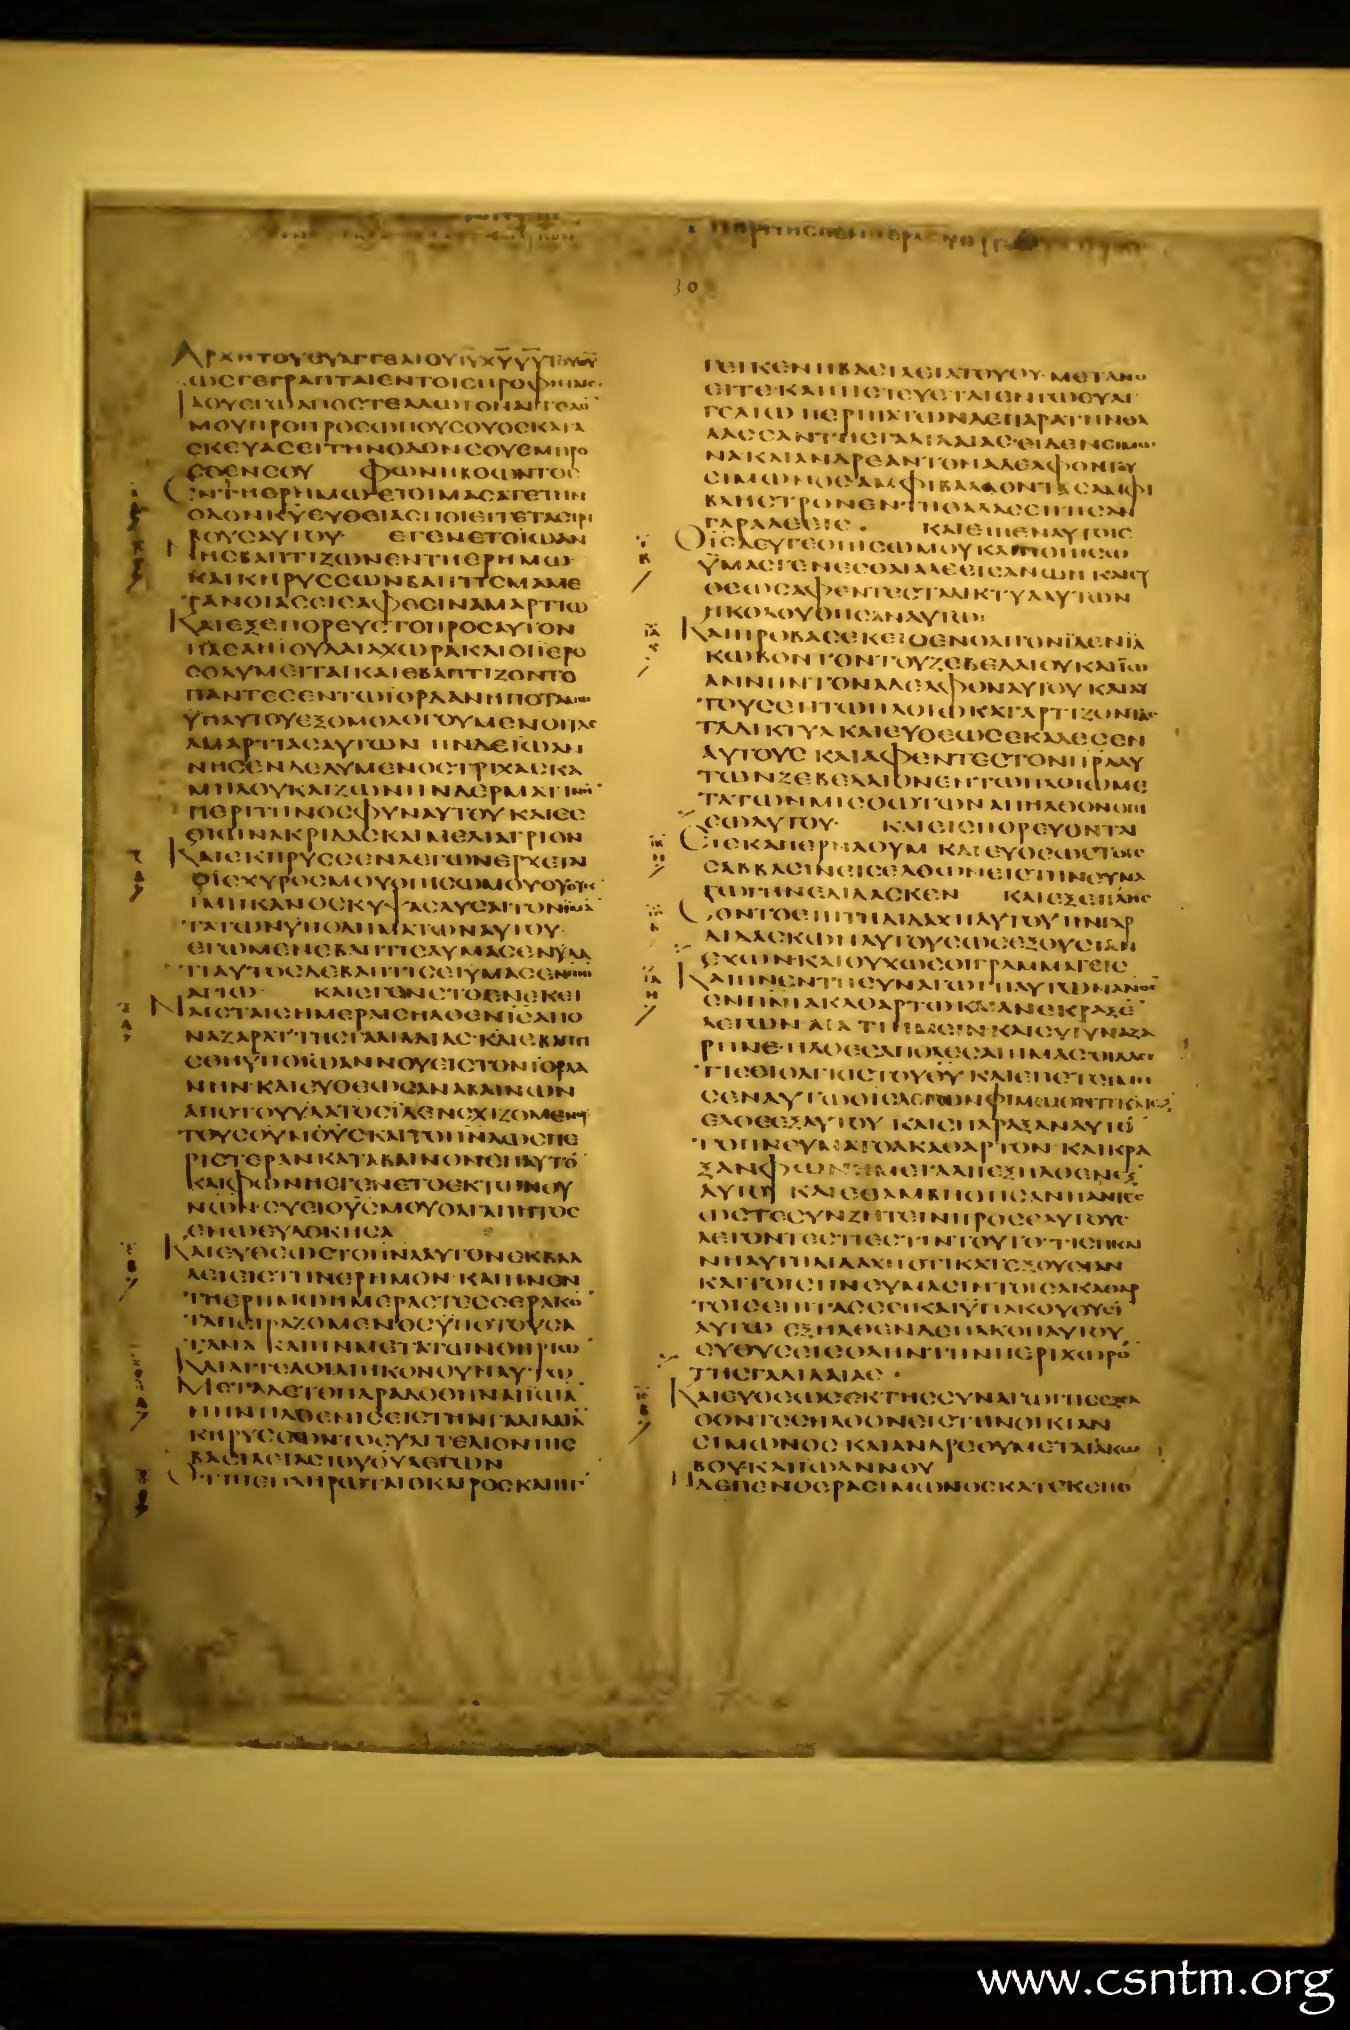 30
ΑΡΧΗΤΟΥΕΥΑΓΓΕΛΙΟΥΙΥΧΥΥΥΤΟΥΘΥ
ΩϹΓΕΓΡΑΠΤΑΙΕΝΤΟΙϹΠΡΟΦΗΤΑΙϹ
ΙΔΟΥΕΓΩΑΠΟϹΤΕΛΛΩΤΟΝΑΓΓΕΛΟ
ΜΟΥΠΡΟΠΡΟϹΩΠΟΥϹΟΥΟϹΚΑΤΑ
ϹΚΕΥΑϹΕΙΤΗΝΟΔΟΝϹΟΥΕΜΠΡΟ
ϹΘΕΝϹΟΥ ΦΩΝΗΒΟΩΝΤΟϹ
ΕΝΤΗΕΡΗΜΩΕΤΟΙΜΑϹΑΤΕΤΗΝ
ΟΔΟΝΚΥΕΥΘΕΙΑϹΠΟΙΕΙΤΕΤΑϹΤΡΙ
ΒΟΥϹΑΥΤΟΥ· ΕΓΕΝΕΤΟΪΩΑΝ
ΝΗϹΒΑΠΤΙΖΩΝΕΝΤΗΕΡΗΜΩ
ΚΑΙΚΗΡΥϹϹΩΝΒΑΠΤΙϹΜΑΜΕ
ΤΑΝΟΙΑϹΕΙϹΑΦΕϹΙΝΑΜΑΡΤΙΩ
ΚΑΙΕΞΕΠΟΡΕΥΕΤΟΠΡΟϹΑΥΤΟΝ
ΠΑϹΑΗΙΟΥΔΑΙΑΧΩΡΑΚΑΙΟΙΪΕΡΟ
ϹΟΛΥΜΕΙΤΑΙΚΑΙΕΒΑΠΤΙΖΟΝΤΟ
ΠΑΝΤΕϹΕΝΤΩΪΟΡΔΑΝΗΠΟΤΑΜΩ
ΫΠΑΥΤΟΥΕΞΟΜΟΛΟΓΟΥΜΕΝΟΙΤΑϹ
ΑΜΑΡΤΙΑϹΑΥΤΩΝ ΗΝΔΕΪΩΑΝ
ΝΗϹΕΝΔΕΔΥΜΕΝΟϹΤΡΙΧΑϹΚΑ
ΜΗΛΟΥΚΑΙΖΩΝΗΝΔΕΡΜΑΤΙΝΗ
ΠΕΡΙΤΗΝΟϹΦΥΝΑΥΤΟΥΚΑΙΕϹ
ΘΙΩΝΑΚΡΙΔΑϹΚΑΙΜΕΛΙΑΓΡΙΟΝ
ΚΑΙΕΚΗΡΥϹϹΕΝΛΕΓΩΝΕΡΧΕΤΑΙ
ΟΙϹΧΥΡΟϹΜΟΥΟΠΙϹΩΜΟΥΟΥΟΥΚ
ΙΜΙΪΚΑΝΟϹΚΥΨΑϹΛΥϹΑΙΤΟΝΙΜΑ
ΤΑΤΩΝΫΠΟΔΗΜΑΤΩΝΑΥΤΟΥ·
ΕΓΩΜΕΝΕΒΑΠΤΙϹΑΫΜΑϹΕΝΫΔΑ
ΤΙΑΥΤΟϹΔΕΒΑΠΤΙϹΕΙΫΜΑϹΕΝΠΝΙ
ΑΓΙΩ· ΚΑΙΕΓΕΝΕΤΟΕΝΕΚΕΙ
ΝΑΙϹΤΑΙϹΗΜΕΡΑΙϹΗΛΘΕΝΙϹΑΠΟ
ΝΑΖΑΡΑΤΤΗϹΓΑΛΙΛΑΙΑϹ·ΚΑΙΕΒΑΠΤΙ
ϹΘΗΫΠΟΪΩΑΝΝΟΥΕΙϹΤΟΝΪΟΡΔΑ
ΝΗΝ·ΚΑΙΕΥΘΕΩϹΑΝΑΒΑΙΝΩΝ
ΑΠΟΤΟΥΫΔΑΤΟϹΪΔΕΝϹΧΙΖΟΜΕΝΟΥϹ
ΤΟΥϹΟΥΝΟΥϹΚΑΙΤΟΠΝΑΩϹΠΕ
ΡΙϹΤΕΡΑΝΚΑΤΑΒΑΙΝΟΝΕΠΑΥΤΟ
ΚΑΙΦΩΝΗΕΓΕΝΕΤΟΕΚΤΩΝΟΥ
ΝΩΝ·ϹΥΕΙΟΥϹΜΟΥΟΑΓΑΠΗΤΟϹ
ΕΝΩΕΥΔΟΚΗϹΑ
ΚΑΙΕΥΘΕΩϹΤΟΠΝΑΑΥΤΟΝΕΚΒΑΛ
ΛΕΙΕΙϹΤΗΝΕΡΗΜΟΝ·ΚΑΙΗΝΕΝ
ΤΗΕΡΗΜΩΗΜΕΡΑϹΤΕϹϹΕΡΑΚΟ
ΤΑΠΕΙΡΑΖΟΜΕΝΟϹΫΠΟΤΟΥϹΑ
ΤΑΝΑ ΚΑΙΗΝΜΕΤΑΤΩΝΘΗΡΙΩ
ΚΑΙΑΓΓΕΛΟΙΔΙΗΚΟΝΟΥΝΑΥΤΩ
ΜΕΤΑΔΕΤΟΠΑΡΑΔΟΘΗΝΑΙΪΩΑ
ΝΗΝΗΛΘΕΝΙϹΕΙϹΤΗΝΓΑΛΙΛΑΙΑ
ΚΗΡΥϹϹΩΝΤΟΕΥΑΓΓΕΛΙΟΝΤΗϹ
ΒΑϹΙΛΕΙΑϹΤΟΥΘΥΛΕΓΩΝ
ΟΤΙΠΕΠΛΗΡΩΤΑΙΟΚΑΙΡΟϹΚΑΙΗΓ
ΓΕΙΚΕΝΗΒΑϹΙΛΕΙΑΤΟΥΘΥ·ΜΕΤΑΝΟ
ΕΙΤΕ·ΚΑΙΠΙϹΤΕΥΕΤΑΙΕΝΤΩΕΥΑΓ
ΓΕΛΙΩ ΠΕΡΙΠΑΤΩΝΔΕΠΑΡΑΤΗΝΘΑ
ΛΑϹϹΑΝΤΗϹΓΑΛΙΛΑΙΑϹ·ΕΙΔΕΝϹΙΜΩ
ΝΑΚΑΙΑΝΔΡΕΑΝΤΟΝΑΔΕΛΦΟΝΤΟΥ
ϹΙΜΩΝΟϹΑΜΦΙΒΑΛΛΟΝΤΑϹΑΜΦΙ
ΒΛΗϹΤΡΟΝΕΝΤΗΘΑΛΑϹϹΗΗϹΑΝ
ΓΑΡΑΛΕΕΙϹ· ΚΑΙΕΙΠΕΝΑΥΤΟΙϹ
ΟΙϹΔΕΥΤΕΟΠΙϹΩΜΟΥΚΑΙΠΟΙΗϹΩ
ΫΜΑϹΓΕΝΕϹΘΑΙΑΛΕΕΙϹΑΝΩΝΚΑΙΕΥ
ΘΕΩϹΑΦΕΝΤΕϹΤΑΔΙΚΤΥΑΑΥΤΩΝ
ΗΚΟΛΟΥΘΗϹΑΝΑΥΤΩ·
ΚΑΙΠΡΟΒΑϹΕΚΕΙΘΕΝΟΛΙΓΟΝΪΔΕΝΪΑ
ΚΩΒΟΝΤΟΝΤΟΥΖΕΒΕΔΑΙΟΥΚΑΙΪΩ
ΑΝΝΗΝΤΟΝΑΔΕΛΦΟΝΑΥΤΟΥΚΑΙΑΥ
ΤΟΥϹΕΝΤΩΠΛΟΙΩΚΑΤΑΡΤΙΖΟΝΤΑϹ
ΤΑΔΙΚΤΥΑΚΑΙΕΥΘΕΩϹΕΚΑΛΕϹΕΝ
ΑΥΤΟΥϹΚΑΙΑΦΕΝΤΕϹΤΟΝΠΡΑΑΥ
ΤΩΝΖΕΒΕΔΑΙΟΝΕΝΤΩΠΛΟΙΩΜΕ
ΤΑΤΩΝΜΙϹΘΩΤΩΝΑΠΗΛΘΟΝΟΠΙ
ϹΩΑΥΤΟΥ· ΚΑΙΕΙϹΠΟΡΕΥΟΝΤΑΙ
ΕΙϹΚΑΠΕΡΝΑΟΥΜΚΑΙΕΥΘΕΩϹΤΟΙϹ
ϹΑΒΒΑϹΙΝΕΙϹΕΛΘΩΝΕΙϹΤΗΝϹΥΝΑ
ΓΩΓΗΝΕΔΙΔΑϹΚΕΝ ΚΑΙΕΞΕΠΛΗϹ
ϹΟΝΤΟΕΠΙΤΗΔΙΔΑΧΗΑΥΤΟΥΗΝΓΑΡ
ΔΙΔΑϹΚΩΝΑΥΤΟΥϹΩϹΕΞΟΥϹΙΑΝ
ΕΧΩΝ·ΚΑΙΟΥΧΩϹΟΙΓΡΑΜΜΑΤΕΙϹ
ΚΑΙΗΝΕΝΤΗϹΥΝΑΓΩΓΗΑΥΤΩΝΑΝΟϹ
ΕΝΠΝΙΑΚΑΘΑΡΤΩΚΑΙΑΝΕΚΡΑΞΕ
ΛΕΓΩΝΕΑΤΙΗΜΙΝΚΑΙϹΟΙΙΥΝΑΖΑ
ΡΗΝΕ·ΗΛΘΕϹΑΠΟΛΕϹΑΙΗΜΑϹ·ΟΙΔΑϹΕ
ΤΙϹΕΙΟΑΓΙΟϹΤΟΥΘΥΚΑΙΕΠΕΤΙΜΗ
ϹΕΝΑΥΤΩΟΙϹΛΕΓΩΝΦΙΜΩΘΗΤΙΚΑΙΕΞ
ΕΛΘΕΕΞΑΥΤΟΥ ΚΑΙϹΠΑΡΑΞΑΝΑΥΤΟ
ΤΟΠΝΕΥΜΑΤΟΑΚΑΘΑΡΤΟΝ·ΚΑΙΚΡΑ
ΞΑΝΦΩΝΗΜΕΓΑΛΗΕΞΗΛΘΕΝΕΞ
ΑΥΤΟΥ ΚΑΙΕΘΑΜΒΗΘΗϹΑΝΠΑΝΤΕϹ
ΩϹΤΕϹΥΝΖΗΤΕΙΝΠΡΟϹΕΑΥΤΟΥϹ
ΛΕΓΟΝΤΕϹΤΙΕϹΤΙΝΤΟΥΤΟ·ΤΙϹΗΚΑΙ
ΝΗΑΥΤΗΔΙΔΑΧΗΟΤΙΚΑΤΕΞΟΥϹΙΑΝ
ΚΑΙΤΟΙϹΠΝΕΥΜΑϹΙΝΤΟΙϹΑΚΑΘΑΡ
ΤΟΙϹΕΠΙΤΑϹϹΕΙΚΑΙΫΠΑΚΟΥΟΥϹΙ
ΑΥΤΩ ΕΞΗΛΘΕΝΔΕΗΑΚΟΗΑΥΤΟΥ
ΕΥΘΥϹΕΙϹΟΛΗΝΤΗΝΠΕΡΙΧΩΡΟ
ΤΗϹΓΑΛΙΛΑΙΑϹ·
ΚΑΙΕΥΘΕΩϹΕΚΤΗϹϹΥΝΑΓΩΓΗϹΕΞΕΛ
ΘΟΝΤΕϹΗΛΘΟΝΕΙϹΤΗΝΟΙΚΙΑΝ
ϹΙΜΩΝΟϹΚΑΙΑΝΔΡΕΟΥΜΕΤΑΪΑΚΩ
ΒΟΥ·ΚΑΙΪΩΑΝΝΟΥ
ΗΔΕΠΕΝΘΕΡΑϹΙΜΩΝΟϹΚΑΤΕΚΕΙΤΟ
www.csntm.org